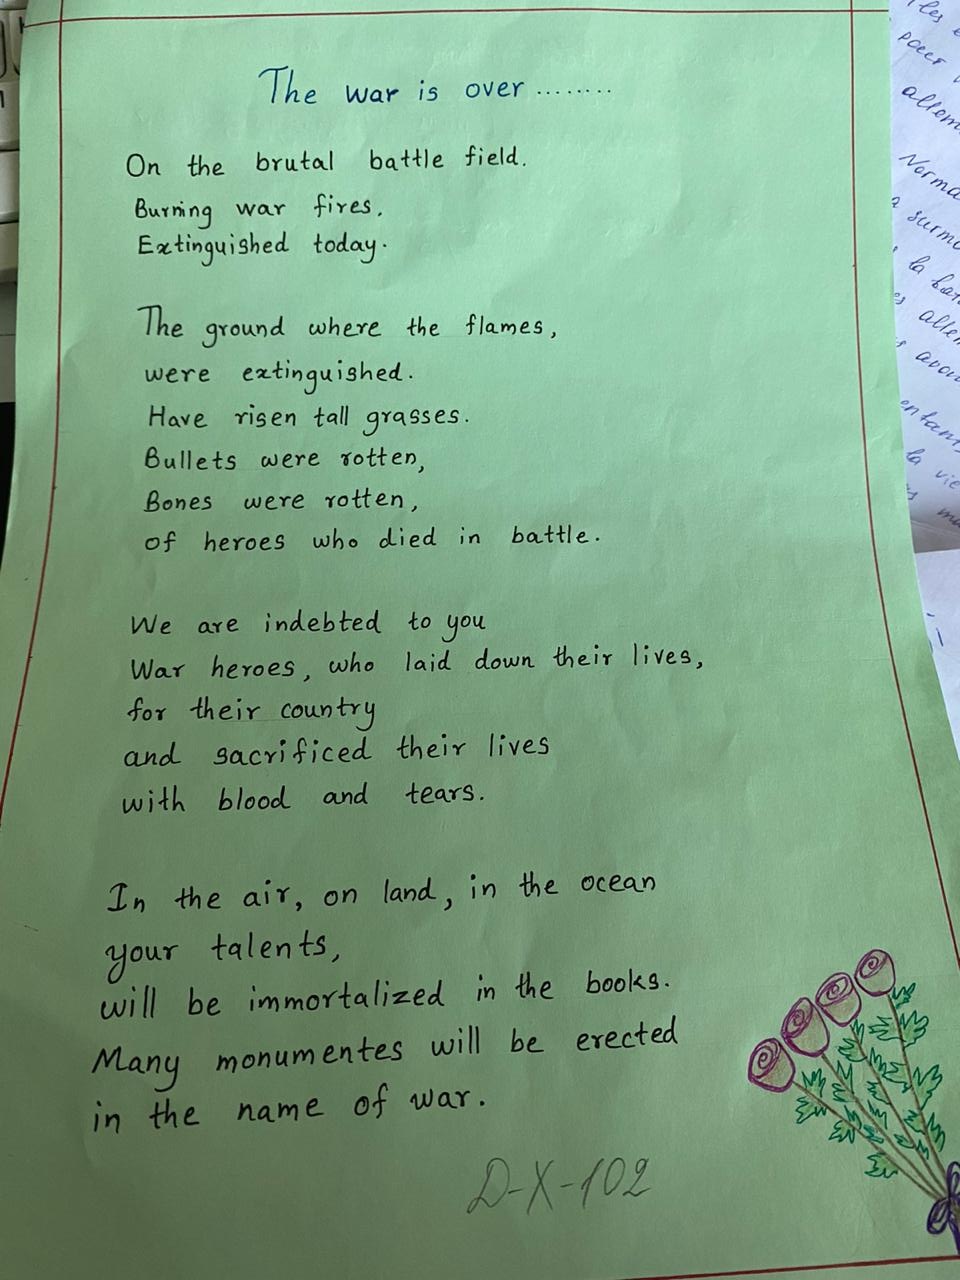 The war is over ........
On the brutal battle field.
Burning war fires.
Extinguished today.
The ground where the flames,
were extinguished.
Have risen tall grasses.
Bullets were rotten,
Bones were rotten,
of heroes who died in battle.
We are indebted to you
War heroes, who laid down their lives,
for their country
and sacrificed their lives
with blood and tears.
In the air, on land, in the ocean
your talents,
will be immortalized in the books.
Many monumentes will be erected
in the name of war.
D-X-102
les
pour
Norma
la
la vie